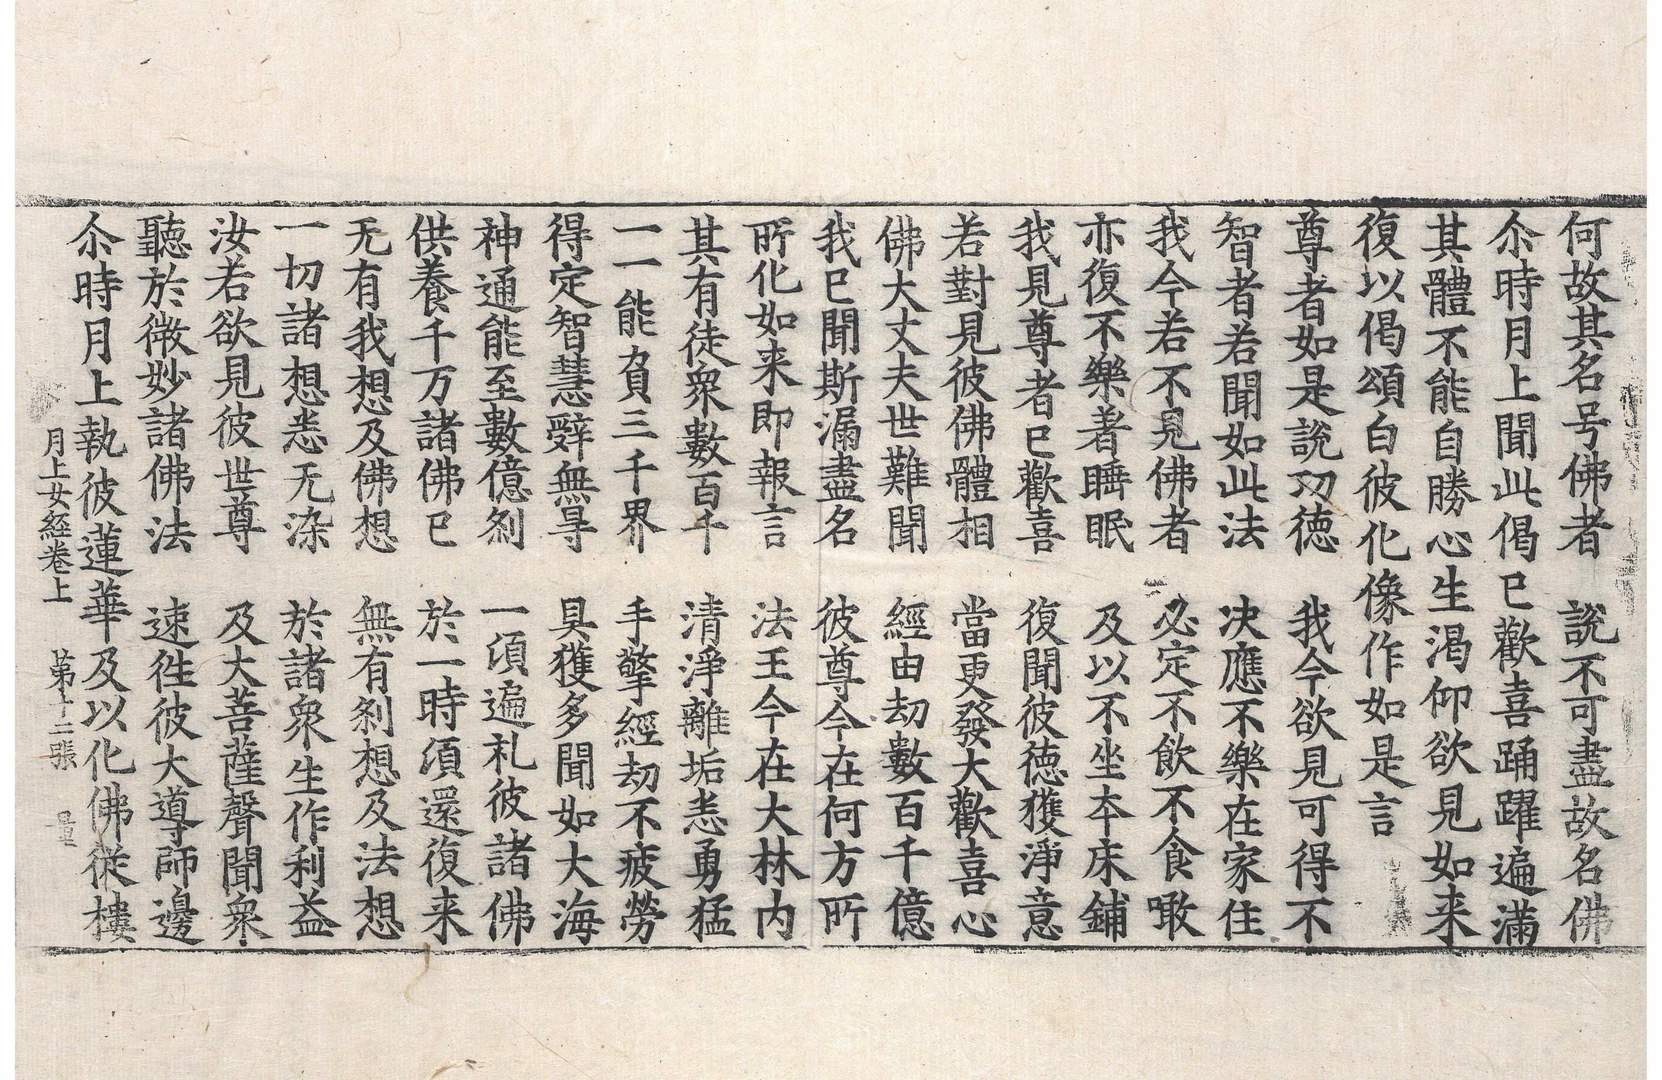 何故其名号佛者　說不可盡故名佛
尒時月上聞此偈已歡喜踊躍遍滿
其體不能自勝心生渴仰欲見如来
復以偈頌白彼化像作如是言
尊者如是說功徳　我今欲見可得不
智者若聞如此法　决應不樂在家住
我今若不見佛者　必定不飲不食噉
亦復不樂著睡眠　及以不坐夲床鋪
我見尊者已歡喜　復聞彼徳獲淨意
若對見彼佛體相　當更發大歡喜心
佛大丈夫世難聞　經由劫數百千億
我已聞斯漏盡名　彼尊今在何方所
所化如来即報言　法王今在大林内
其有徒衆數百千　清淨離垢悉勇猛
一一能負三千界　手擎經劫不疲勞
得定智慧辤無㝵　具獲多聞如大海
神通能至數億刹　一湏遍礼彼諸佛
供養千万諸佛已　於一時湏還復来
无有我想及佛想　無有刹想及法想
一切諸想悉无染　於諸衆生作利益
汝若欲見彼世尊　及大菩薩聲聞衆
聽於微妙諸佛法　速往彼大導師邊
尒時月上執彼蓮華及以化佛従樓
月上女經卷上　第十二張　量